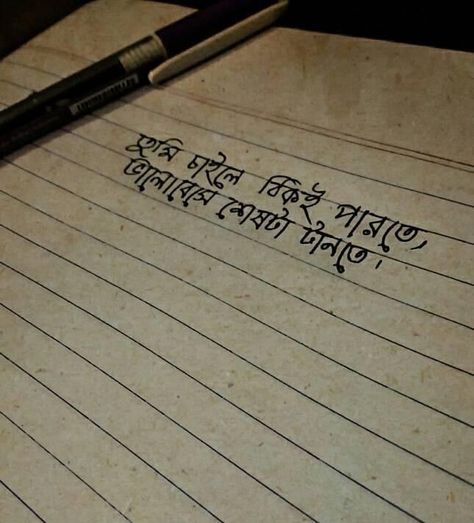 তুমি চাইলে ঠিকই পারতে,
ভালোবেসে শেষটা টানতে।